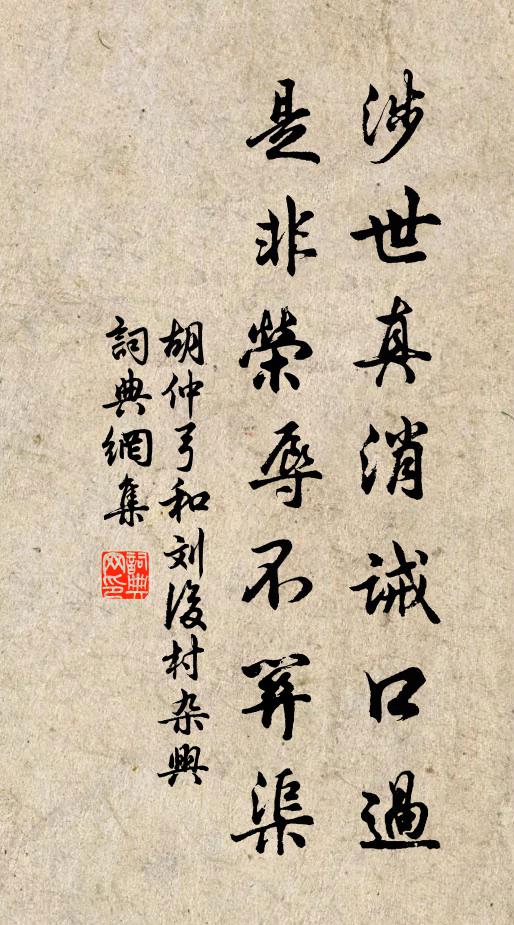 涉世真消誡口過
是非榮辱不關渠
胡仲弓和刘後村杂興
詞典網集
詞典网印